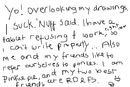 Yo! Overlooking my drawings
I suck. 'Nuff said. I have a
tablet refusing to work, so
i can't write properly... Also
me and my friends like to
refer ourselves to ponies. I am
Pinkie pie, and my two best
friends are RD & FS.